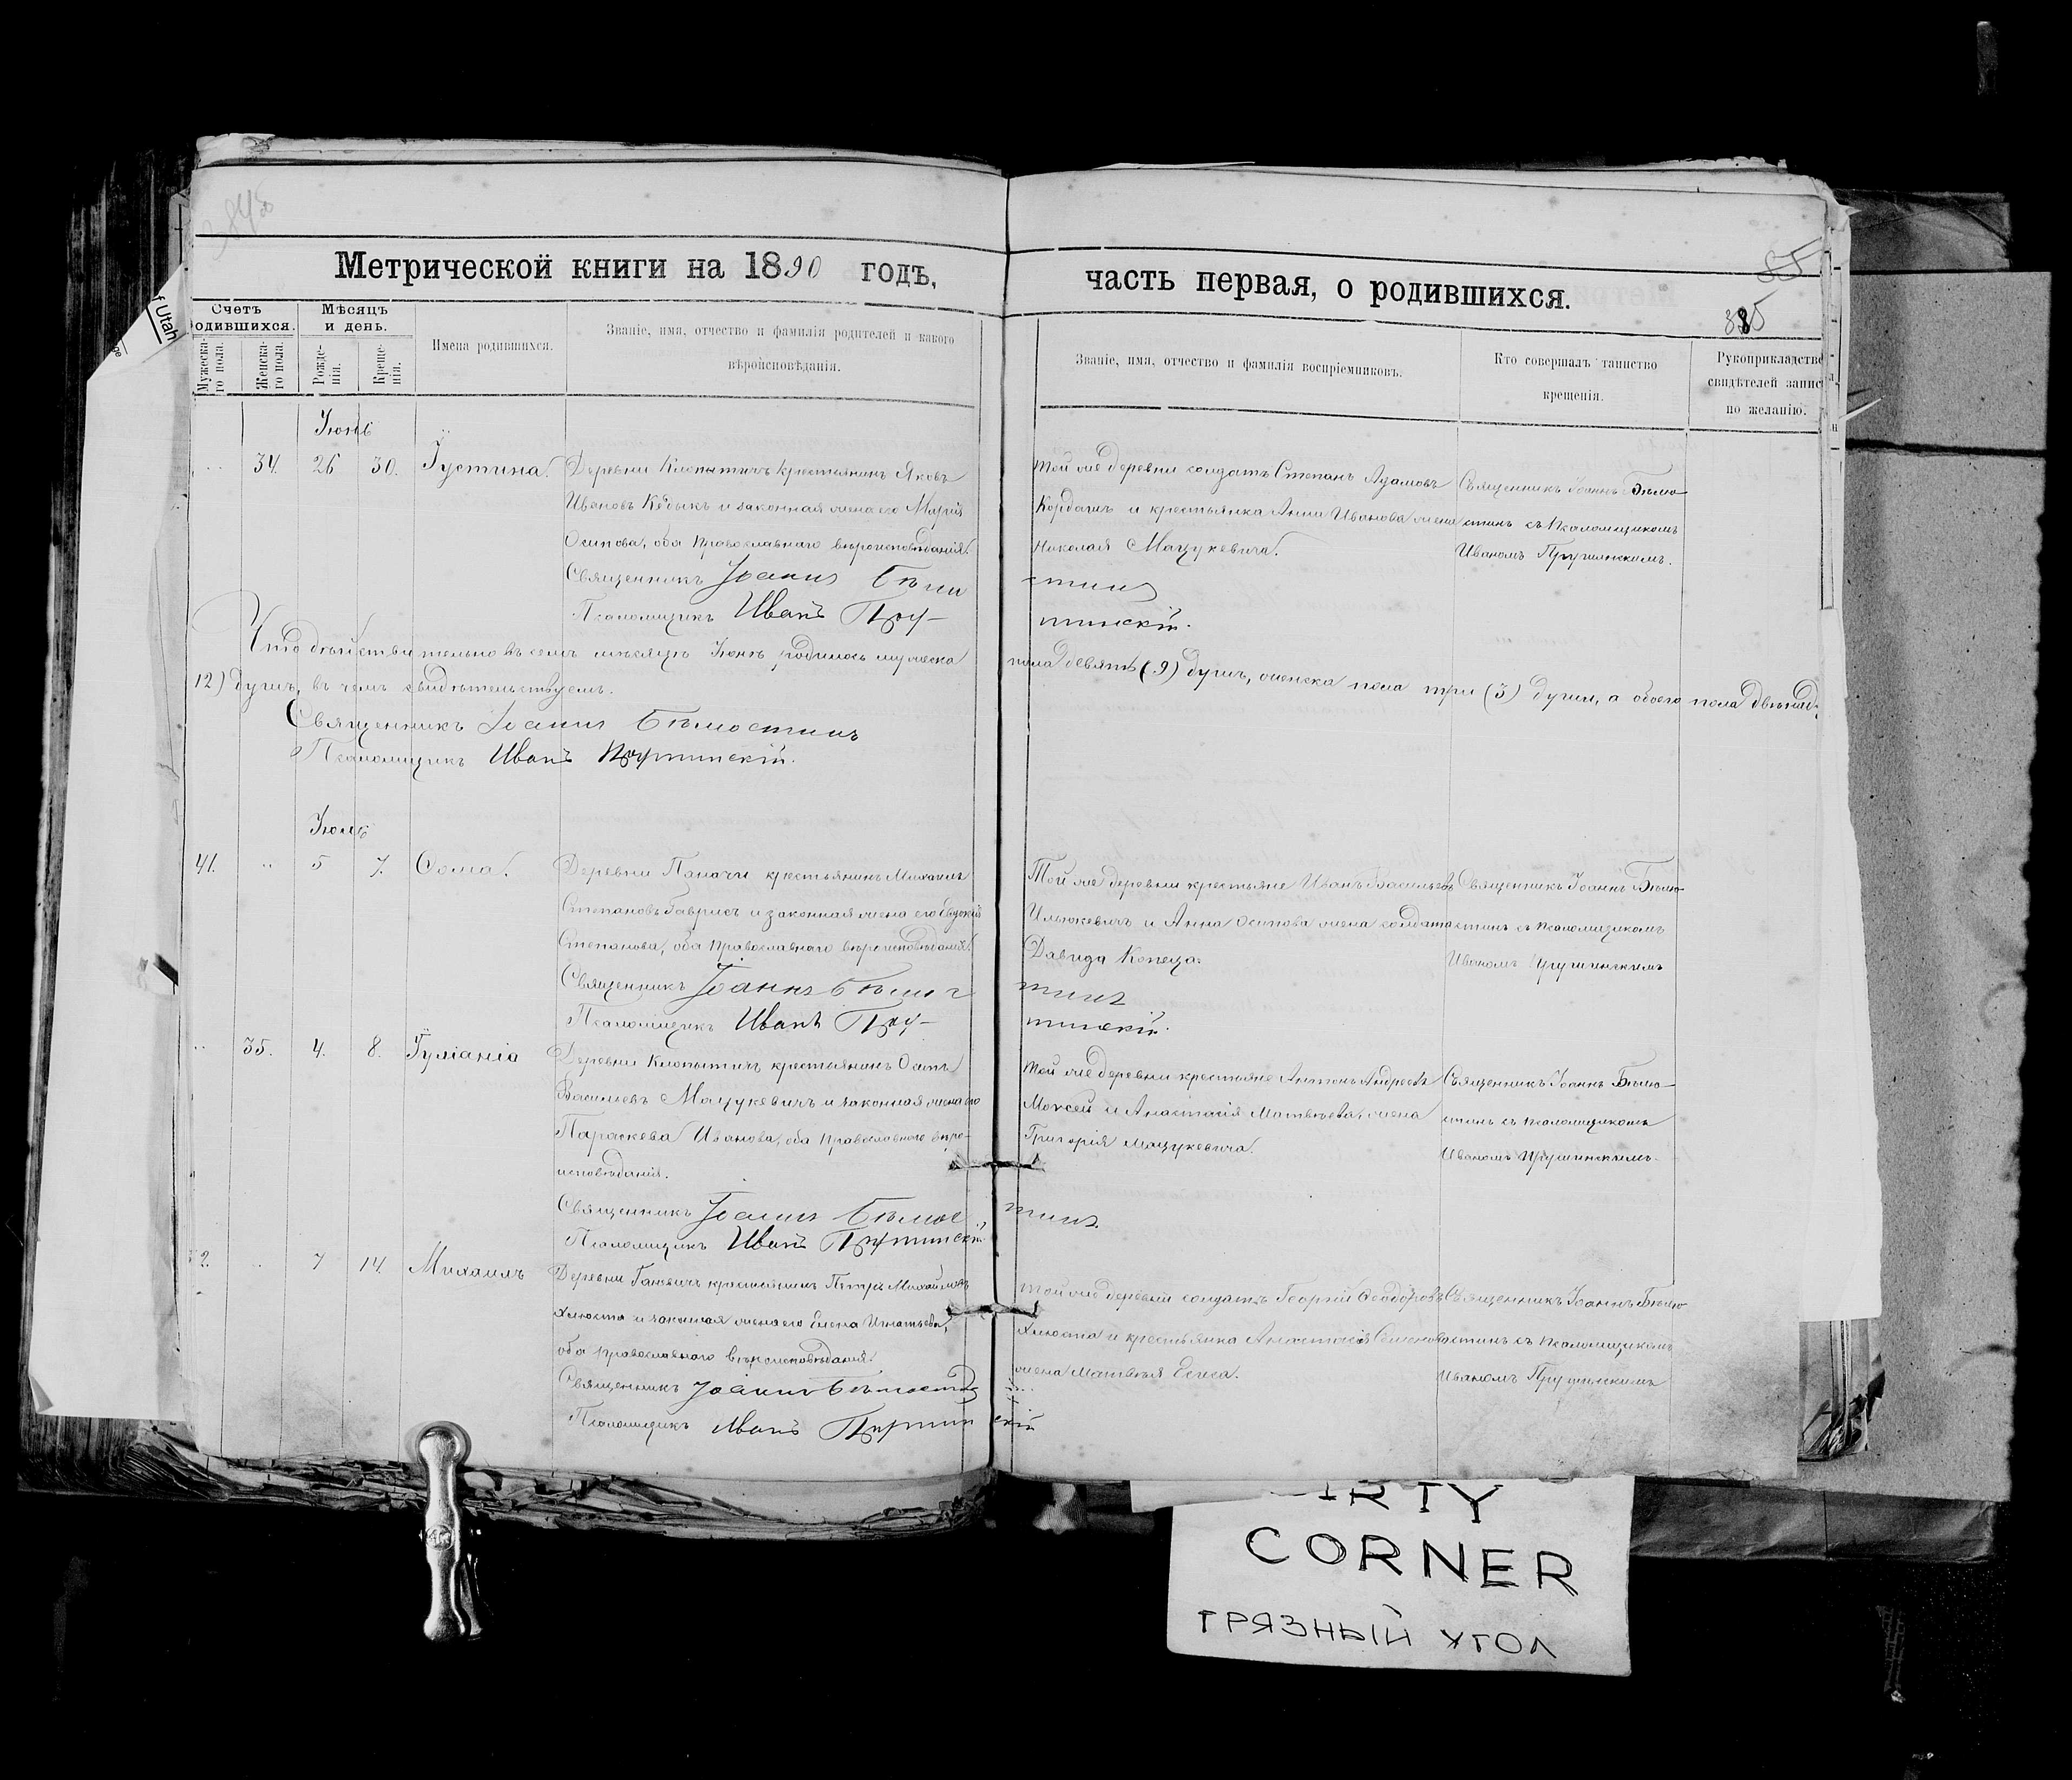 Метрической книги на 1890 годъ,
часть первая, о родившихся.
385
Счетъ родившихся.
Мужеска-го пола.
Женска-го пола.
Мѣсяцъ и день.
Рожде-нія.
Креще-нія.
Имена родившихся.
Званіе, имя, отчество и фамилія родителей и какого
вѣроисповѣданія.
Званіе, имя, отчество и фамилія воспріемниковъ.
Кто совершалъ таинство
крещенія.
Рукоприкладство
свидѣтелей записи
по желанію.
Іюнь
34. 26 30. Іустина.
Деревни Клопытичъ крестьянинъ Яковъ
Ивановъ и законная жена его Марія
Осипова, оба православнаго вѣроисповѣданія.
Священникъ Іоаннъ Бѣло
Псаломщикъ Иванъ Пру-
Той же деревни солдатъ Степанъ Адамовъ
Кордашъ и крестьянка Анна Иванова жена
Николая Мацукевича.
стинъ
шинскій.
Священникъ Іоаннъ Бѣло-
стинъ съ псаломщикомъ
Иваномъ Прушинскимъ.
Что дѣйствительно въ семъ мѣсяцѣ Іюнѣ родилось мужеска
пола девять (9) душъ, женска пола три (3) души, а обоего пола двѣнад-
12) душъ, въ чемъ свидѣтельствуемъ.
Священникъ Іоаннъ Бѣлостинъ
Псаломщикъ Иванъ Прушинскій.
Іюль
41. 5 7. Ѳома.
Деревни Паначи крестьянинъ Михаилъ
Степановъ Гаврисъ и законная жена его Евдокія
Степанова, оба православнаго вѣроисповѣданія.
Священникъ Іоаннъ Бѣлос
Псаломщикъ Иванъ Пру-
Той же деревни крестьяне Иванъ Васильевъ
Ильюкевичъ и Анна Осипова жена солдата
Давида Копеца.
тинъ
шинскій.
Священникъ Іоаннъ Бѣло-
стинъ съ псаломщикомъ
Иваномъ Прушинскимъ
35. 4. 8. Іуліанія
Деревни Клопытичъ крестьянинъ Осипъ
Васильевъ Мацукевичъ и законная жена его
Параскева Иванова, оба православнаго вѣро-
исповѣданія.
Священникъ Іоаннъ Бѣлос
Псаломщикъ Иванъ Прушинскій.
Той же деревни крестьяне Антонъ Андреевъ
Моксей и Анастасія Матвѣева, жена
Григорія Мацукевича.
тинъ.
Священникъ Іоаннъ Бѣло-
стинъ съ псаломщикомъ
Иваномъ Прушинскимъ.
2. 7 14. Михаилъ
Деревни Ганевичъ крестьянинъ Петръ Михайловъ
Хлюста и законная жена его Елена Игнатьева,
оба православнаго вѣроисповѣданія.
Священникъ Іоаннъ Бѣлостинъ
Псаломщикъ Иванъ Прушинскій
Той же деревни солдатъ Георгій Ѳеодоровъ
Хлюста и крестьянка Анастасія Семенова
жена Матвѣя
Священникъ Іоаннъ Бѣло-
стинъ съ псаломщикомъ
Иваномъ Прушинскимъ
f Utah
DIRTY
CORNER
ГРЯЗНЫЙ УГОЛ